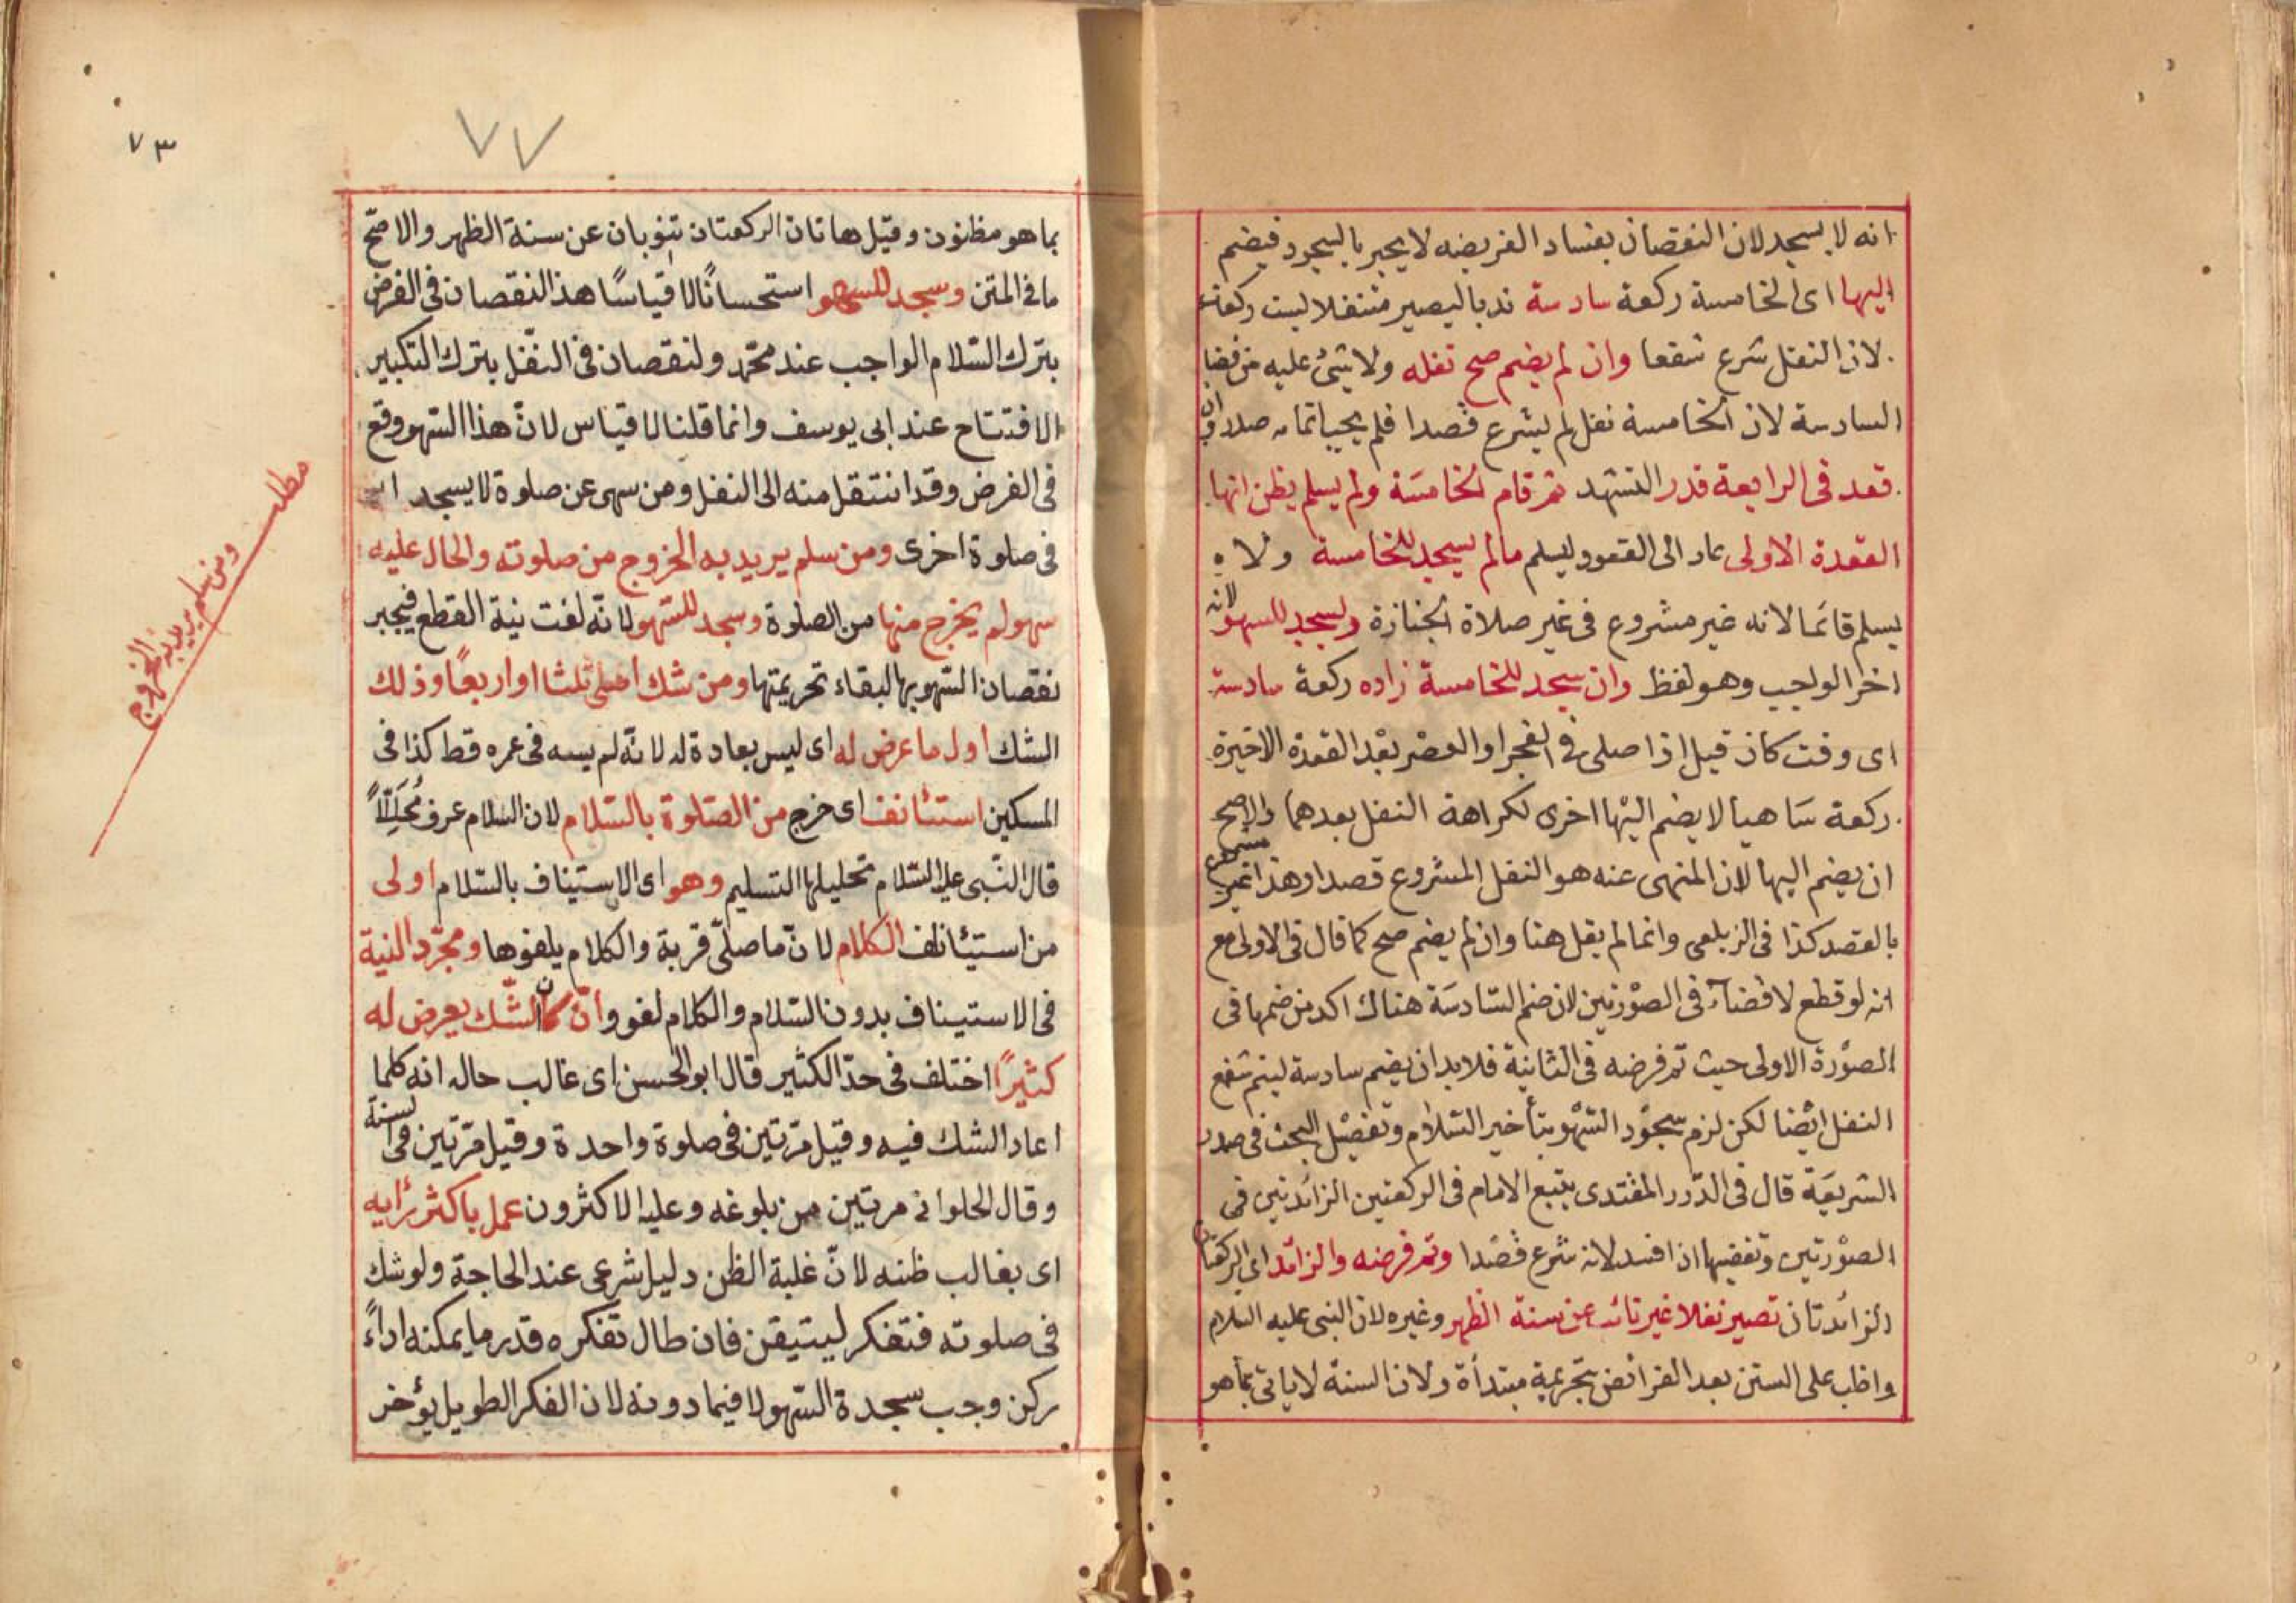 انه لا يسجد لان النقصان بفساد الفريضه لا يجبر بالسجود فيضم
اليها اى الخامسة ركعة سادسة ندبا ليصير متنفلا لست ركعات
لان النفل شرع شفعا وان لم يضم صح نفله ولا شئ عليه من قضا
السادسة لان الخامسة نفل لم يشرع قصدا فلم يجب اتمامه صدر وان
قعد فى الرابعة قدر التشهد ثم قام الخامسة ولم يسلم يظن انها
القعدة الاولى عاد الى القعود ليسلم مالم يسجد للخامسة ولا
يسلم قائما لانه غير مشروع فى غير صلاة الجنازة ويسجد للسهو لانه
اخر الواجب وهو لفظ وان سجد للخامسة زاده ركعة سادسة
اى وقت كان قيل اذا صلى فى الفجر او العصر بعد القعدة الاخيرة
ركعة ساهيا لا يضم اليها اخرى لكراهة النفل بعدهما والاصح
ان يضم اليها لان المنهى عنه هو النفل المشروع قصدا وهذا غير مشروع
بالقصد كذا فى الزيلعى وانما لم يقل هنا وان لم يضم صح كما قال فى الاولى مع
انه لو قطع لا قضاء فى الصورتين لان ضم السادسة هناك اكد من ضمها فى
الصورة الاولى حيث تم فرضه فى الثانية فلا بد ان يضم سادسة ليتم شفع
النفل ايضا لكن لزم سجود السهو بتأخير السلام وتفصيل البحث فى صدر
الشريعة قال فى الدرر المقتدى يتبع الامام فى الركعتين الزائدتين فى
الصورتين وتقضيها اذا افسد لانه شرع قصدا وتم فرضه والزائد اى الركعتان
الزائدتان تصير نفلا غير نائب عن سنة الظهر وغيره لان النبى عليه السلام
واظب على السنن بعد الفرائض بتحريمة مبتدأة ولان السنة لا ياتى بما هو
٧٣
٧٧
بما هو مظنون وقيل هاتان الركعتان تنوبان عن سنة الظهر والاصح
ما فى المتن وسجد للسهو استحسانًا لا قياسًا هذ النقصان فى الفرض
بترك السلام الواجب عند محمد ولنقصان فى النفل بترك التكبير
الافتتاح عند ابى يوسف وانما قلنا لا قياس لان هذا السهو وقع
فى الفرض وقد انتقل منه الى النفل ومن سهى عن صلوة لا يسجد
فى صلوة اخرى ومن سلم يريد به الخروج من صلوته والحال عليه
سهو لم يخرج منها من الصلوة وسجد للسهو لانه لغت نية القطع فيجبر
نقصان السهو بها لبقاء تحريمتها ومن شك اصلى ثلثا او اربعًا وذلك
الشك اول ما عرض له اى ليس بعادة له لانه لم يسه فى عمره قط كذا فى
المسكين استئانف اى خرج من الصلوة بالسلام لان السلام عرف مُحَلِّلًا
قال النبى عليه السلام تحليلها التسليم وهو اى الاستيناف بالسلام اولى
من استيئانف الكلام لان ما صلى قربة والكلام يلغوها ومجرد النية
فى الاستيناف بدون السلام والكلام لغو وان كان الشك يعرض له
كثيرًا اختلف فى حد الكثير قال ابو الحسن اى غالب حاله انه كلما
اعاد الشك فيه وقيل مرتين فى صلوة واحدة وقيل مرتين فى سنة
وقال الحلوانى مرتين من بلوغه وعليه الاكثرون عمل باكثر رأيه
اى بغالب ظنه لان غلبة الظن دليل شرعى عند الحاجة ولو شك
فى صلوته فتفكر ليتيقن فان طال تفكره قدر ما يمكنه اداءً
ركن وجب سجدة السهو لا فيما دونه لان الفكر الطويل يؤخر
مطلب
ومن سلم يريد به الخروج